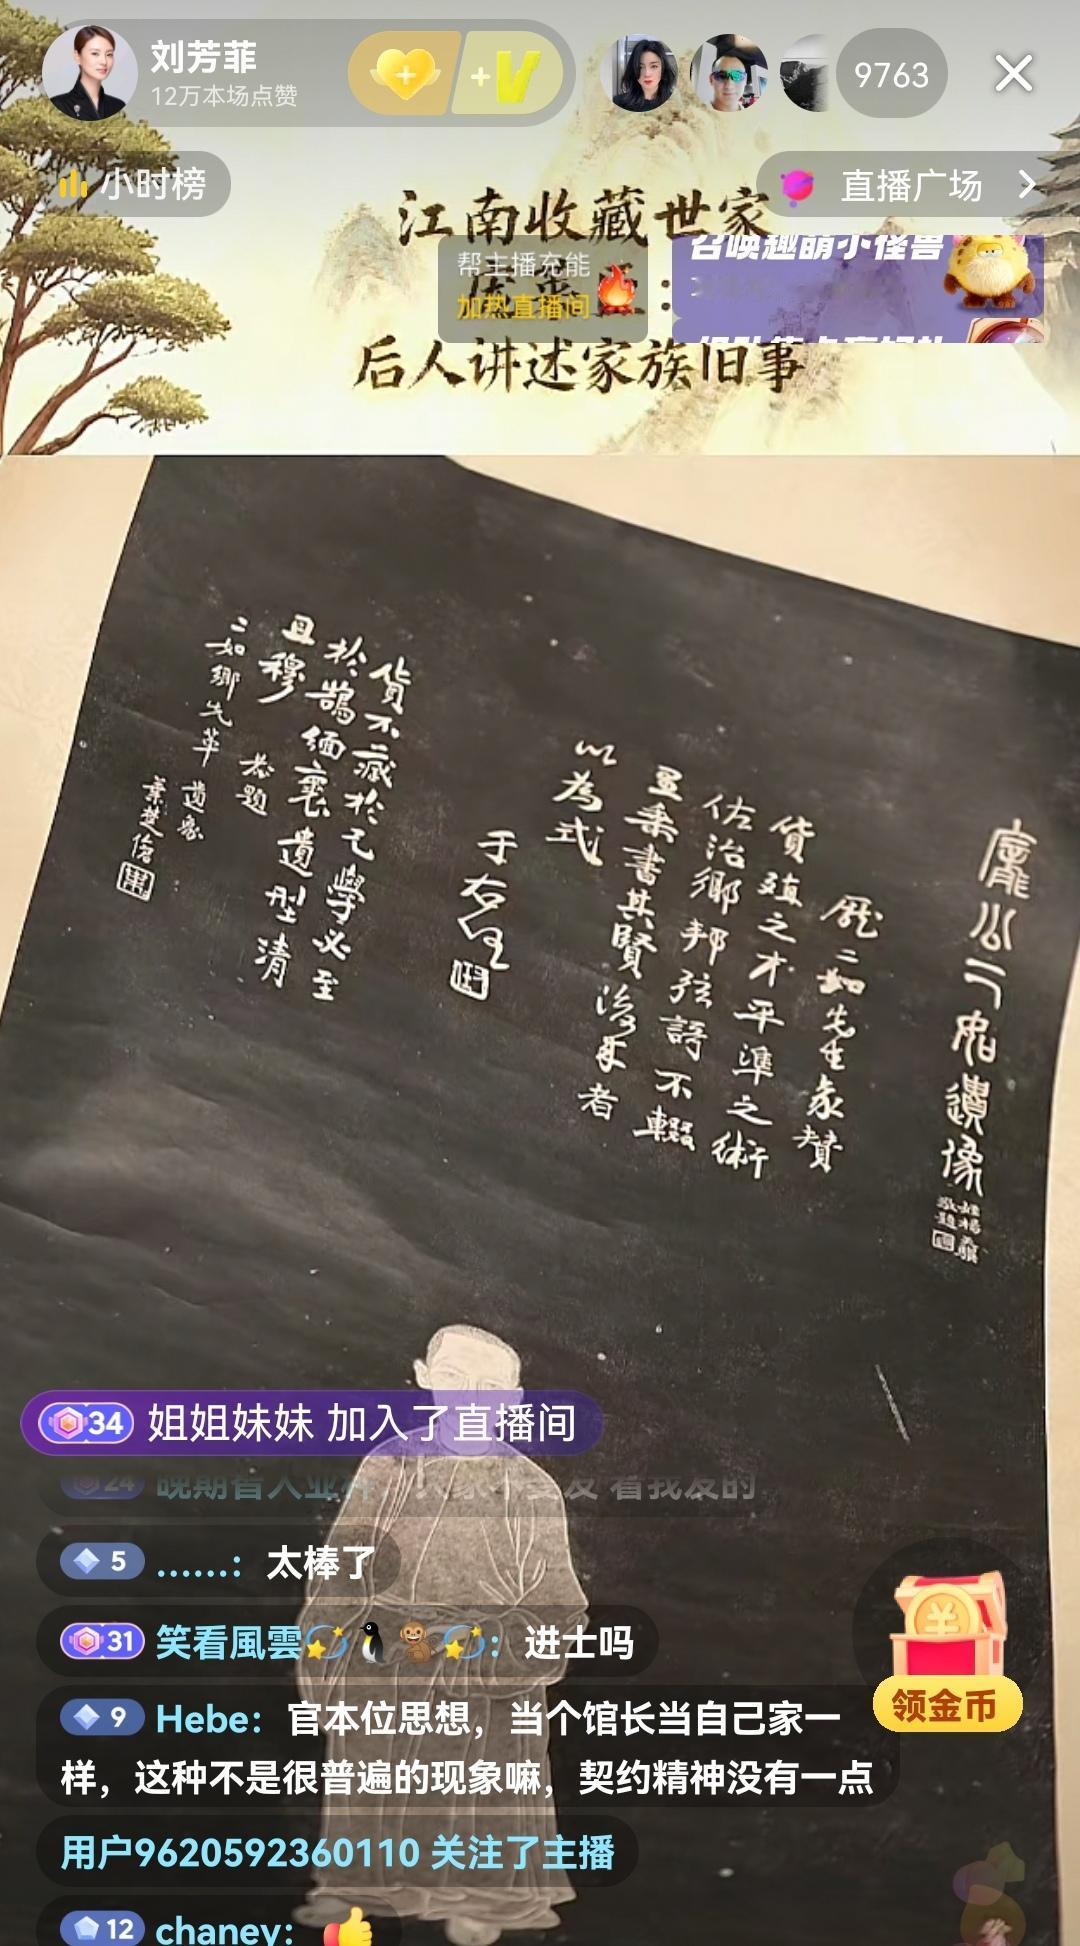 刘芳菲
12万本场点赞
+
+V
9763
小时榜
直播广场
江南收藏世家
召唤趣萌小怪兽
帮主播充能
加热直播间
后人讲述家族旧事
龐公二如遺像
龐二如先生象贊
貨殖之才平準之術
佐治鄉邦弦誦不輟
豆秉書其賢後來者
以為式
于右任
貨不藏於己學必至
於鵠緬襄遺型清
且穆
二如鄉先輩
遺象
恭題
葉楚傖
34 姐姐妹妹 加入了直播间
24
看我发的
5 ......: 太棒了
31 笑看風雲: 进士吗
9 Hebe: 官本位思想，当个馆长当自己家一
样，这种不是很普遍的现象嘛，契约精神没有一点
用户9620592360110 关注了主播
12 chaney:
领金币